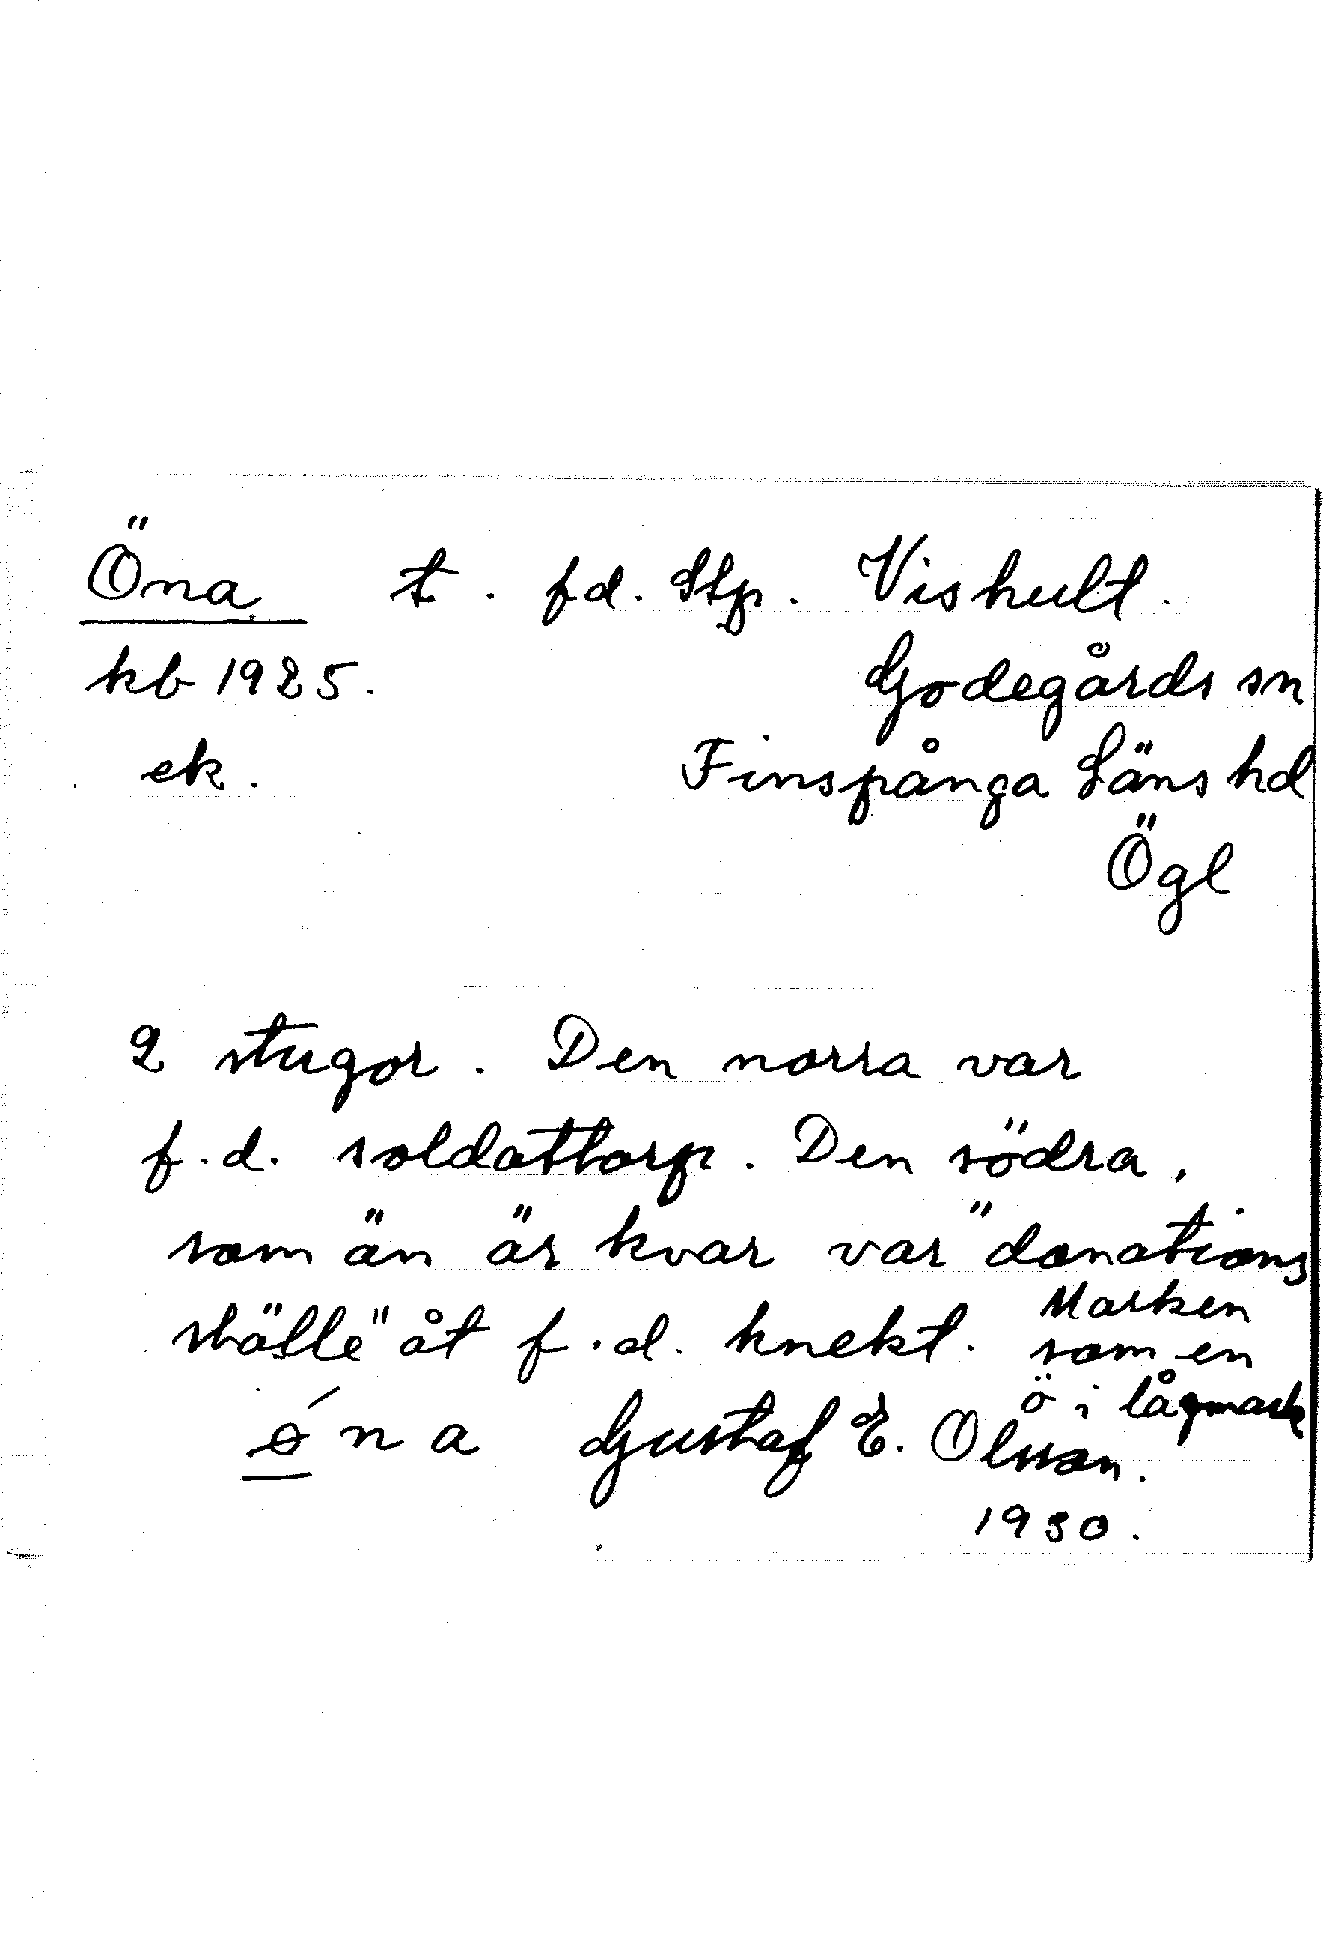 Öna t. fd. Stp. Vishult.
kb 1925. Godegårds sn
ek. Finspånga Läns hd
Ögl
2 stugor. Den norra var
f.d. soldattorp. Den södra,
som än är kvar var "donations
ställe" åt f.d. knekt. Marken
som en
ö i lågmark
ǿna Gustaf E. Olsson.
1930.